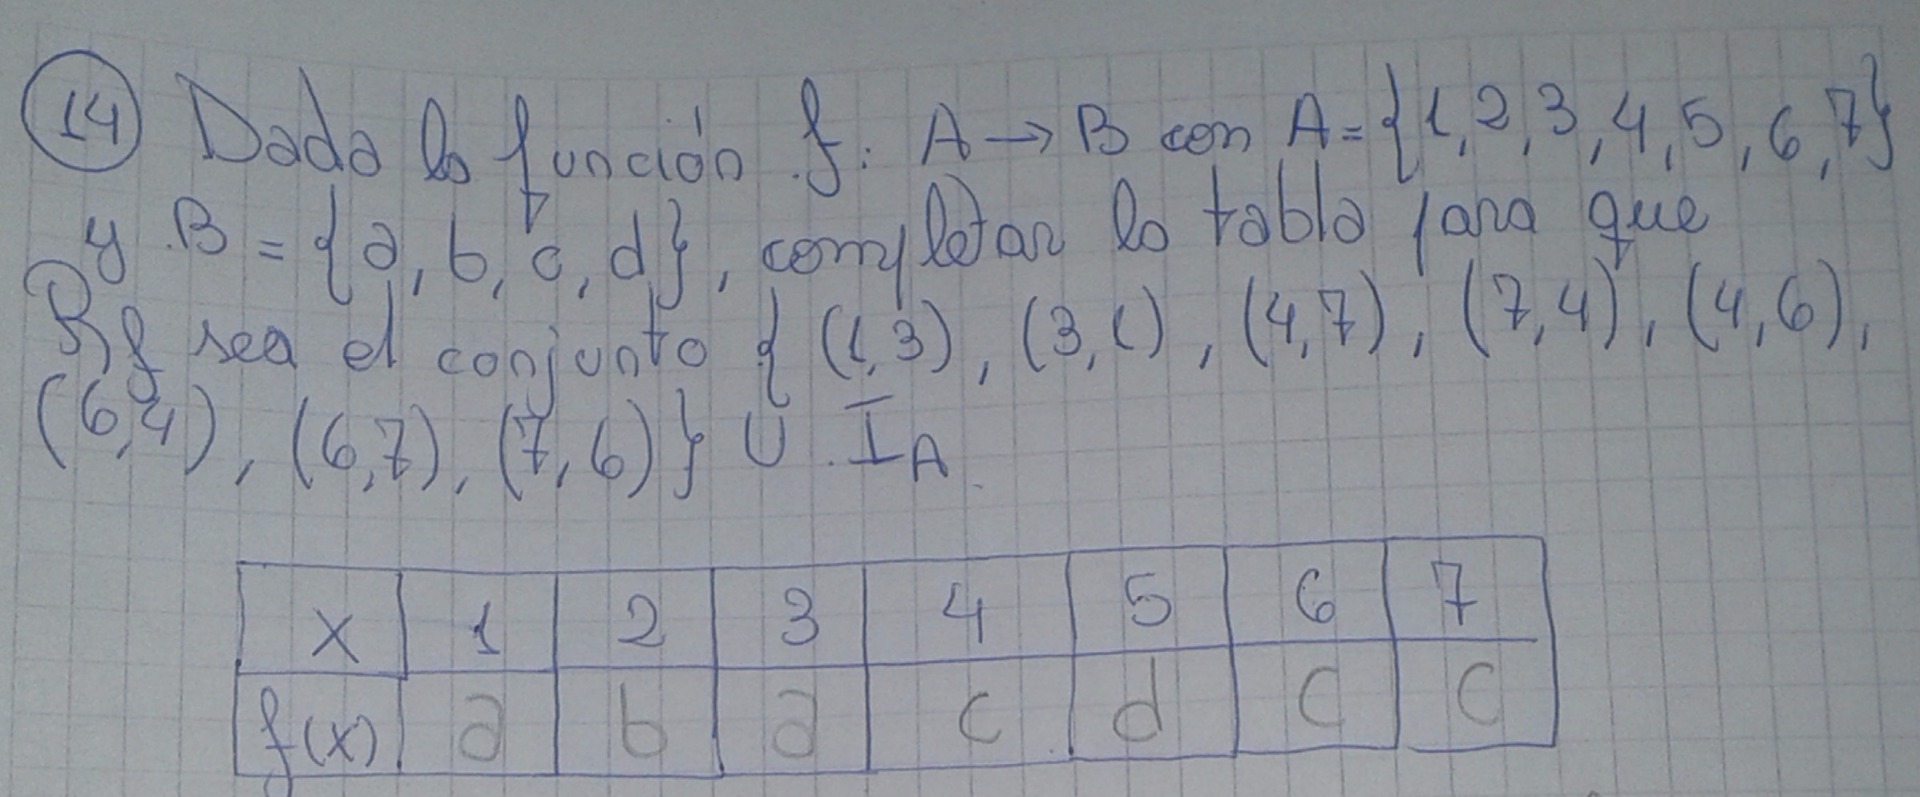 14 Dada la función f: A → B con A = {1, 2, 3, 4, 5, 6, 7}
y B = {a, b, c, d}, completar la tabla para que
Rf sea el conjunto { (1,3), (3,1), (4,7), (7,4), (4,6),
(6,4), (6,7), (7,6)} U I_A
x 1 2 3 4 5 6 7
f(x) a b a c d c c